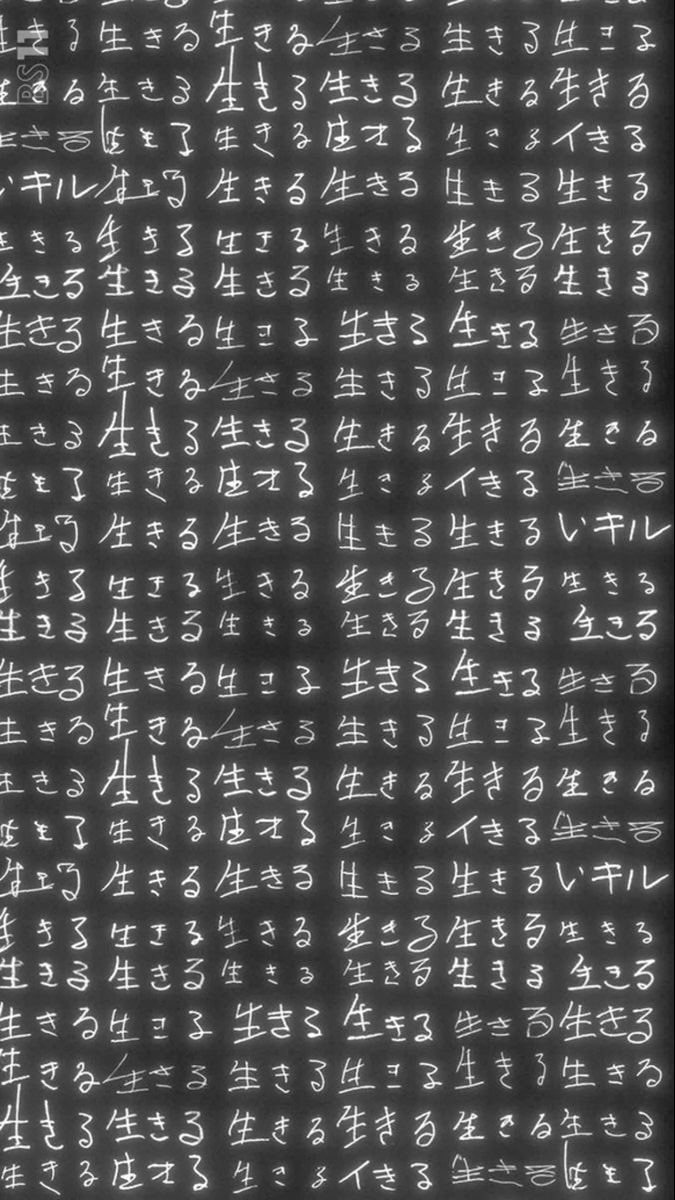 BS11
きる 生きる 生きる 生きる 生きる 生きる
生きる 生きる 生きる 生きる 生きる 生きる
生きる 生きる 生きる 生きる 生きる イきる
いキル 生きる 生きる 生きる 生きる 生きる
生きる 生きる 生きる 生きる 生きる 生きる
生きる 生きる 生きる 生きる 生きる 生きる
生きる 生きる 生きる 生きる 生きる 生きる
生きる 生きる 生きる 生きる 生きる 生きる
生きる 生きる 生きる 生きる 生きる 生きる
生きる 生きる 生きる 生きる イきる 生きる
生きる 生きる 生きる 生きる 生きる いキル
生きる 生きる 生きる 生きる 生きる 生きる
生きる 生きる 生きる 生きる 生きる 生きる
生きる 生きる 生きる 生きる 生きる 生きる
生きる 生きる 生きる 生きる 生きる 生きる
生きる 生きる 生きる 生きる 生きる 生きる
生きる 生きる 生きる 生きる イきる 生きる
生きる 生きる 生きる 生きる 生きる いキル
生きる 生きる 生きる 生きる 生きる 生きる
生きる 生きる 生きる 生きる 生きる 生きる
生きる 生きる 生きる 生きる 生きる 生きる
生きる 生きる 生きる 生きる 生きる 生きる
生きる 生きる 生きる 生きる 生きる 生きる
生きる 生きる 生きる イきる 生きる 生きる